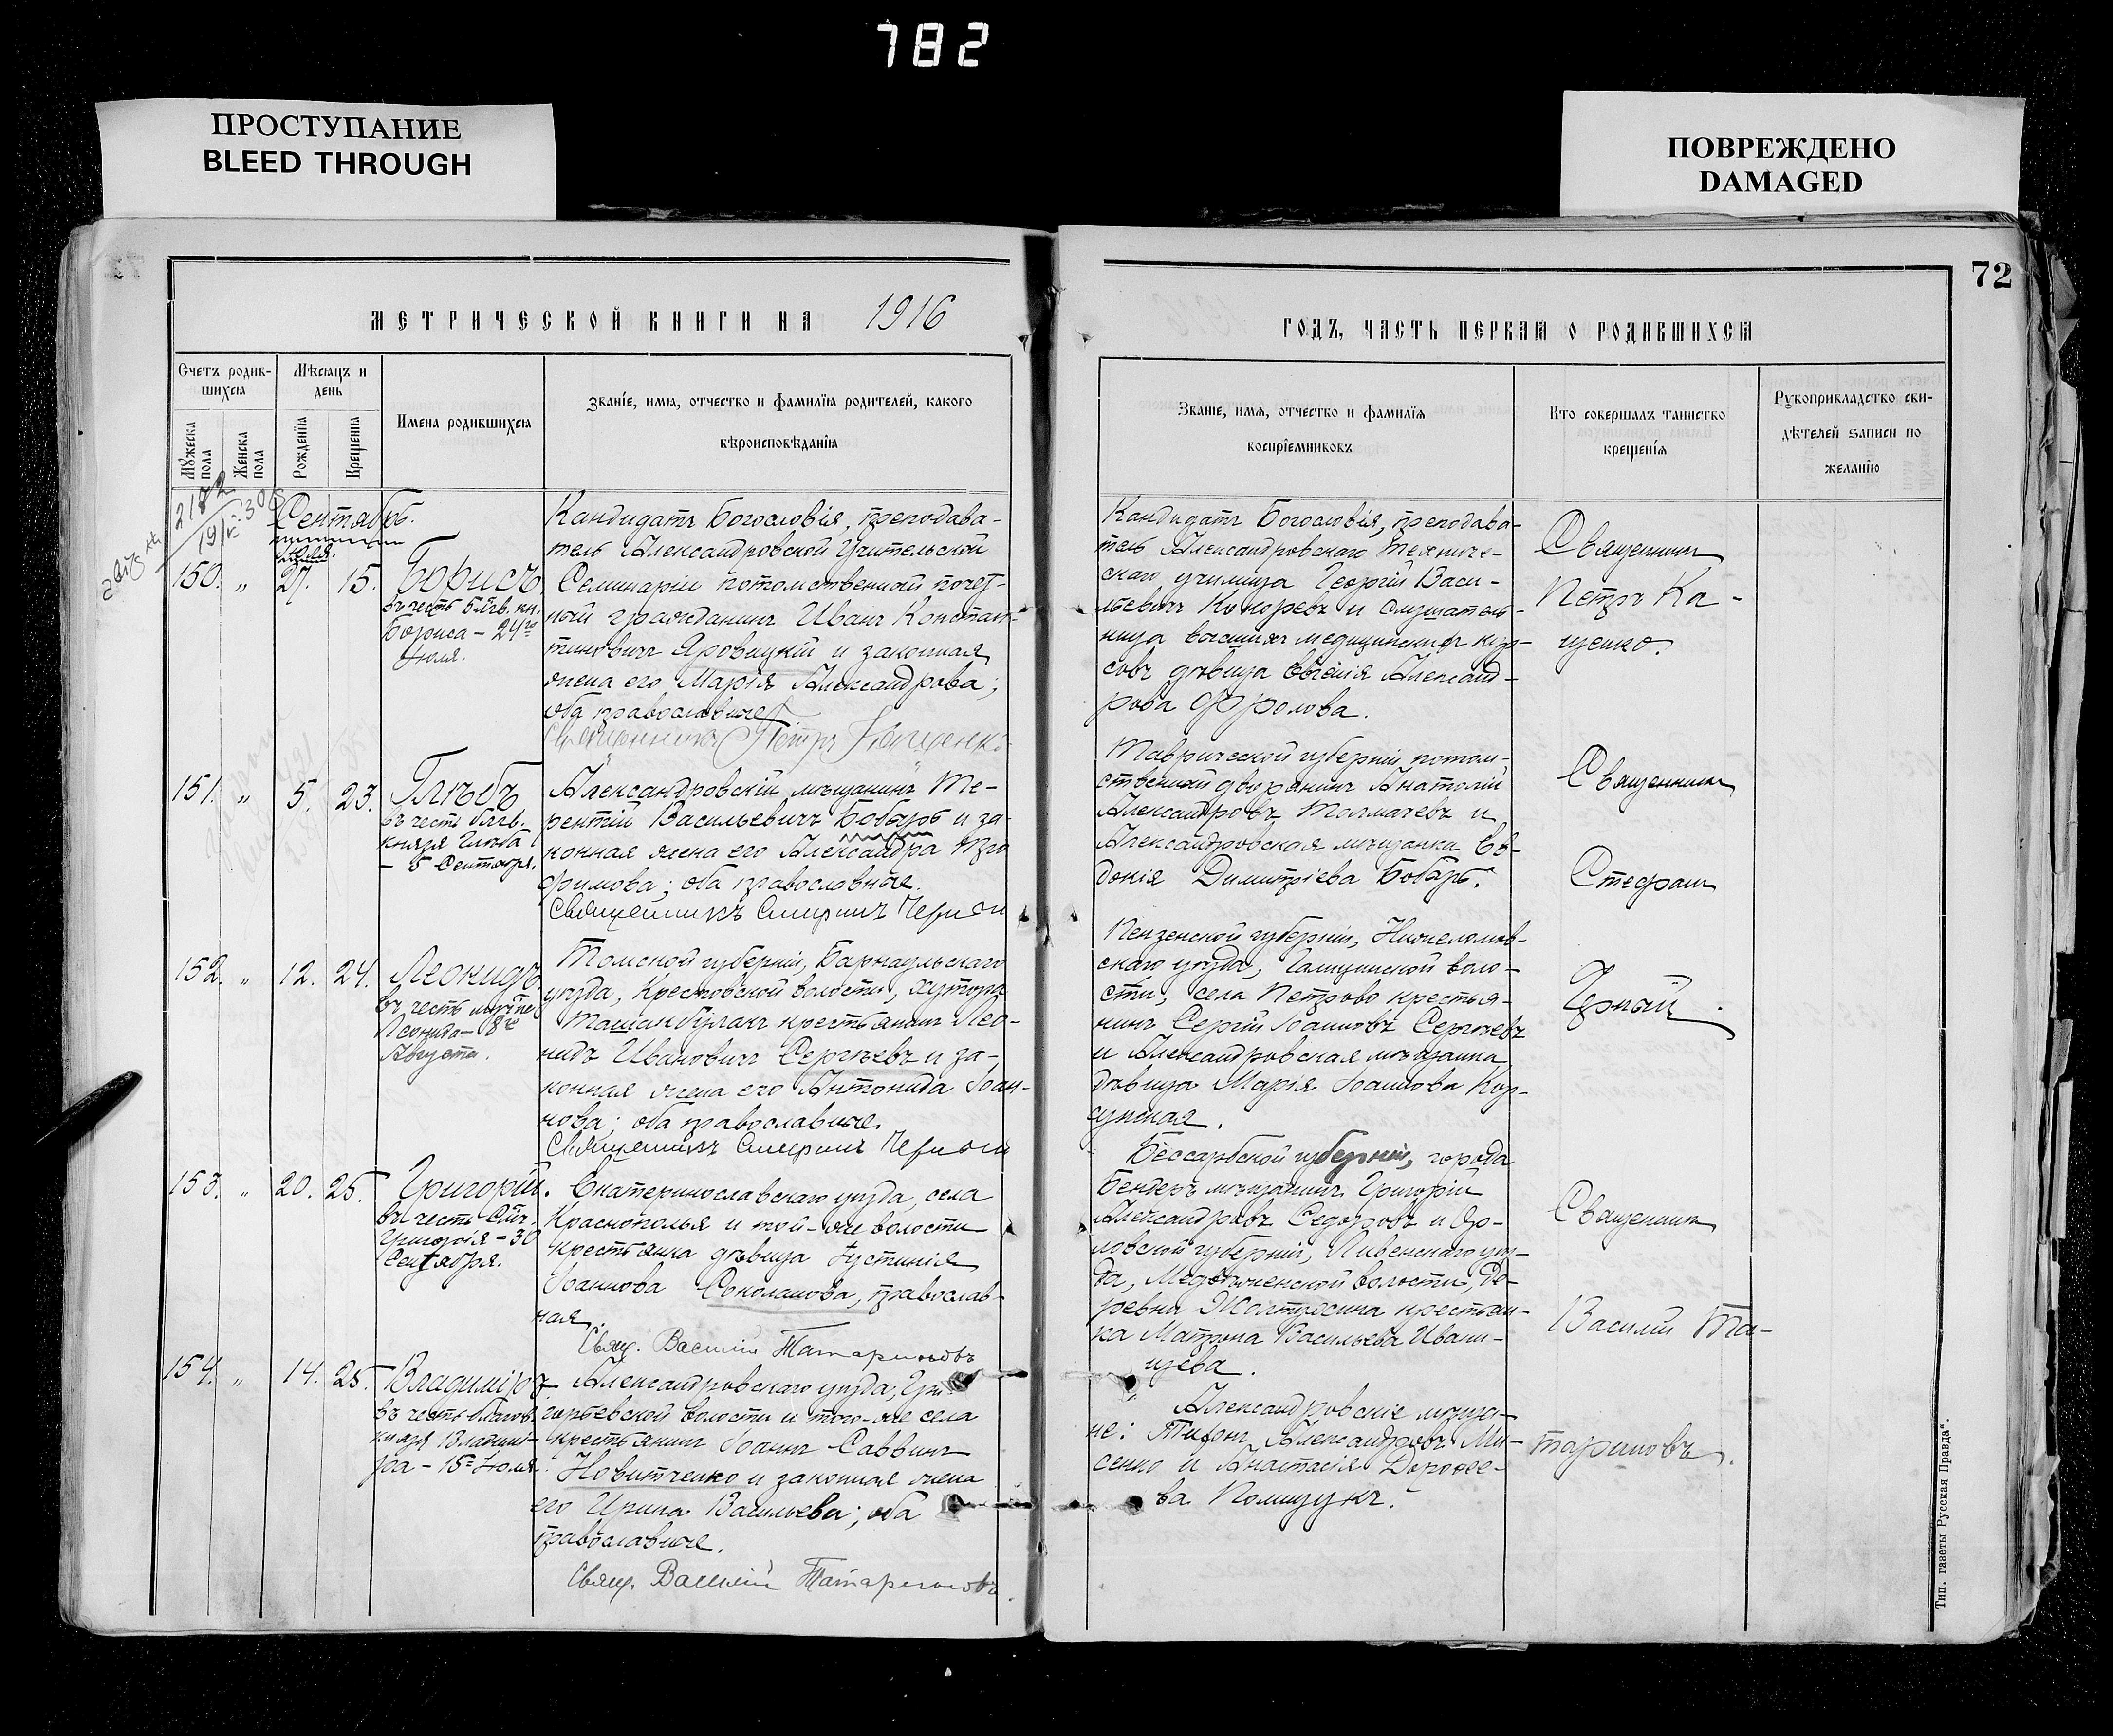 782
ПРОСТУПАНИЕ
BLEED THROUGH
ПОВРЕЖДЕНО
DAMAGED
72
МЕТРИЧЕСКОЙ КНИГИ НА 1916
ГОДЪ, ЧАСТЬ ПЕРВАЯ О РОДИВШИХСЯ
Счетъ родив-
шихся
Мѣсяцъ и
день
Мужеска
пола
Женска
пола
Рожденія
Крещенія
Имена родившихся
Званіе, имя, отчество и фамилія родителей, какого
вѣроисповѣданія
Званіе, имя, отчество и фамилія
воспріемниковъ
Кто совершалъ таинство
крещенія
Рукоприкладство сви-
дѣтелей записи по
желанію
Сентябрь.
Юля.
150. „ 27. 15. Борисъ.
въ честь блгв. кн.
Бориса – 24го
Июля.
Кандидатъ Богословія, преподава-
тель Александровской Учительской
Семинаріи потомственный почет-
ный гражданинъ Иванъ Констан-
тиновичъ Яровицкій и законная
жена его Марія Александрова;
оба православные
Священникъ Петръ Кащенко
Кандидатъ Богословія, преподава-
тель Александровскаго Техниче-
скаго училища Георгій Васи-
льевичъ Кокоревъ и слушатель-
ница высшихъ медицинскихъ кур-
совъ дѣвица Евгенія Александ-
рова Фролова.
Священникъ
Петръ Ка-
щенко.
151. „ 5. 23. Глѣбъ
въ честь блгв.
князя Глѣба
– 5 Сентября.
Александровскій мѣщанинъ Те-
рентій Васильевичъ Бобырь и за-
конная жена его Александра
фимова; оба православные.
Священникъ Стефанъ Черный
Таврической губерніи потом-
ственный дворянинъ Анатолій
Александровъ Толмачевъ и
Александровская мѣщанка Ев-
докія Димитріева Бобырь.
Священникъ
Стефанъ
Черный.
152. „ 12. 24. Леонидъ
въ честь мучен.
Леонида – 8го
Августа.
Томской губерніи, Барнаульскаго
уѣзда, Крестовской волости, хутора
Ташанбулакъ крестьянинъ Лео-
нидъ Ивановичъ Сергѣевъ и за-
конная жена его Антонида Іоан-
нова; оба православные.
Священникъ Стефанъ Черный
Пензенской губерніи, Нижнеломов-
скаго уѣзда, Голицинской воло-
сти, села Петрово крестья-
нинъ Сергій Іоанновъ Сергѣевъ
и Александровская мѣщанка
дѣвица Марія Іоаннова Кор-
сунская.
153. „ 20. 25. Григорій.
въ честь Свт.
Григорія – 30
Сентября.
Екатеринославскаго уѣзда, села
Краснополья и той-же волости
крестьянка дѣвица Іустинія
Іоаннова Соколанова, православ-
ная.
Свящ. Василій Татариновъ
Бессарабской губерніи, города
Бендеръ мѣщанинъ Григорій
Александровъ Седоровъ и Ор-
ловской губерніи, Ливенскаго уѣз-
да, Медвѣженской волости, де-
ревни крестьян-
ка Матрона Васильева Иван-
цева.
Священникъ
Василій Та-
тариновъ.
154. „ 14. 25. Владиміръ
въ честь благов.
князя Владимі-
ра – 15 Июля.
Александровскаго уѣзда, Гри-
горьевской волости и того-же села
крестьянинъ Іоаннъ Саввинъ
Новитченко и законная жена
его Ирина Васильева; оба
православные.
Свящ. Василій Татариновъ.
Александровскіе мѣща-
не: Тихонъ Александровъ Ми-
сенко и Анастасія Дорофее-
ва Полищукъ.
Тип. газеты „Русская Правда“.